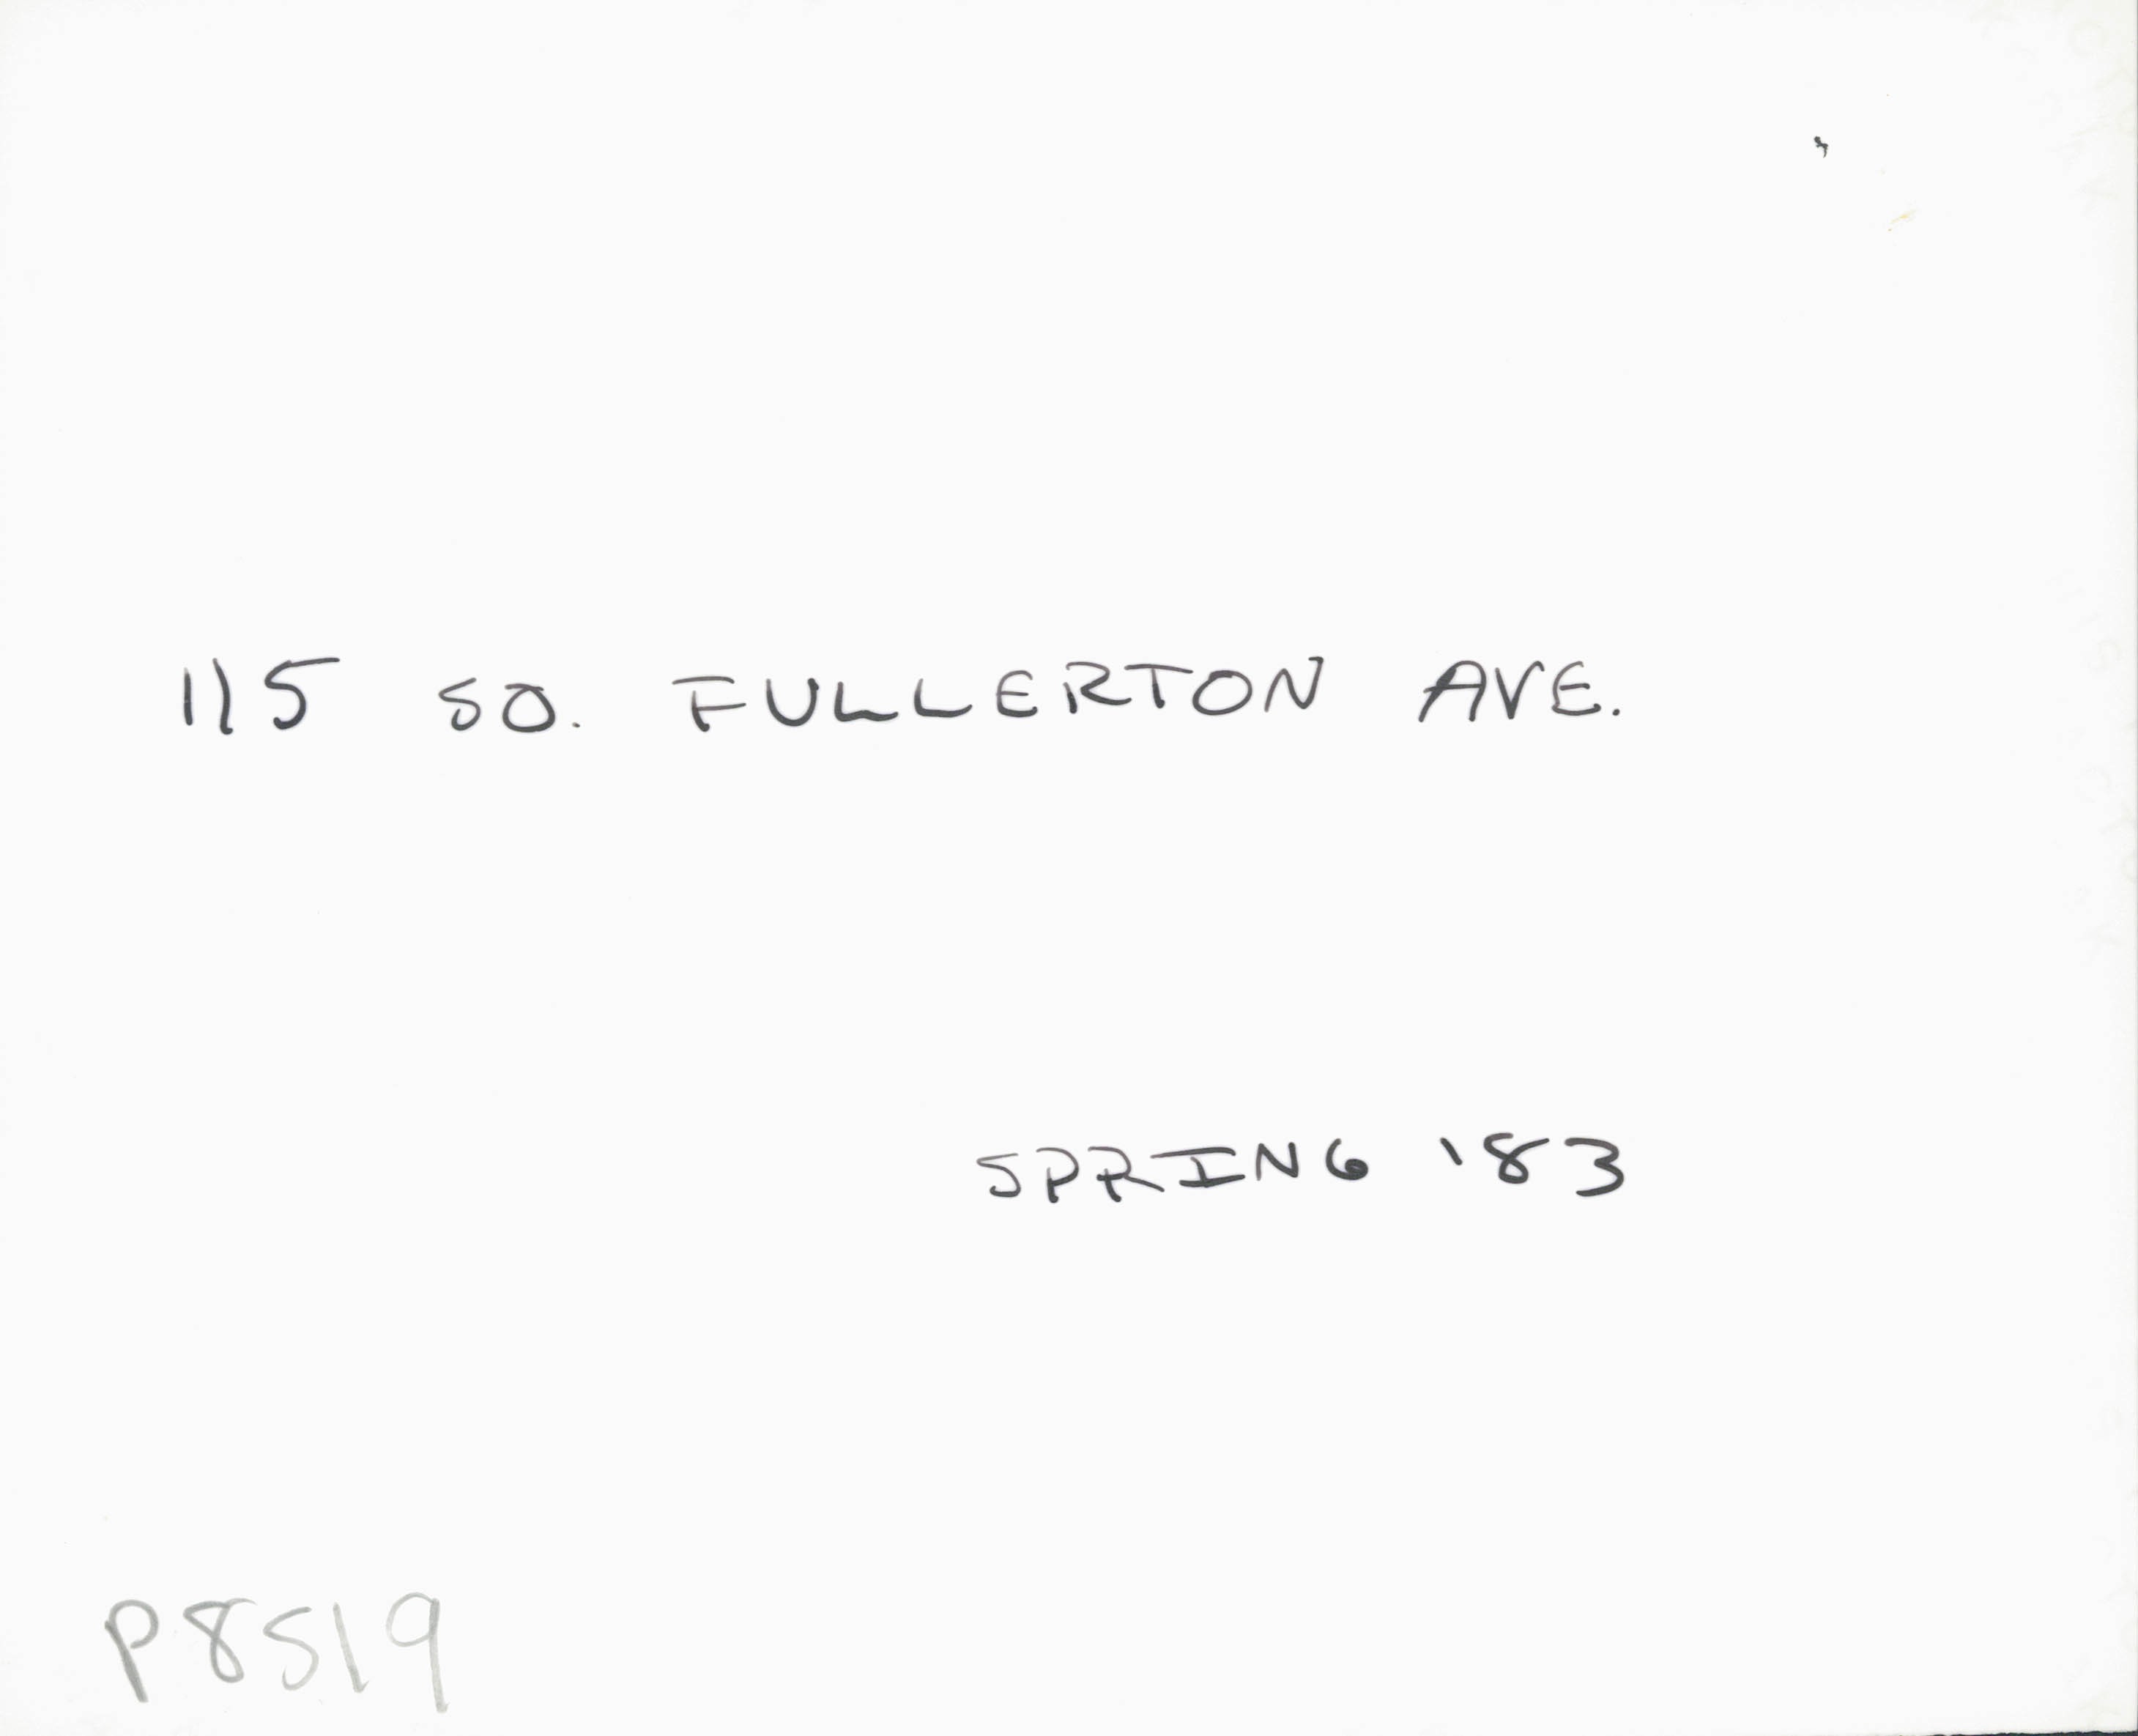 115 SO. FULLERTON AVE.
SPRING '83
P8519